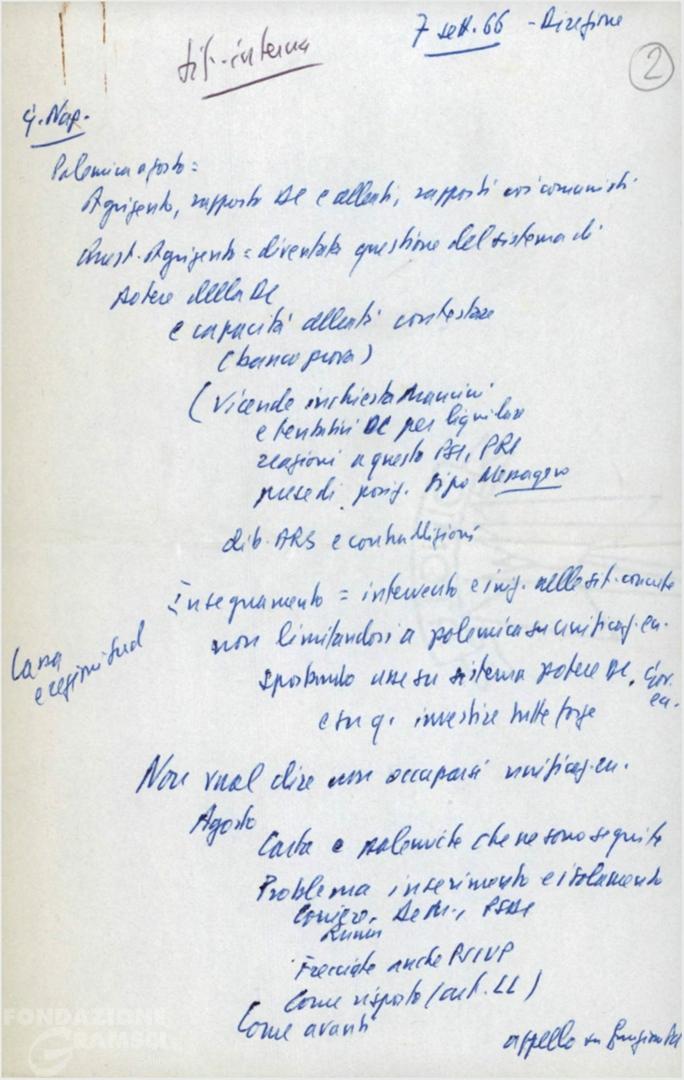 sit. interna
7 sett. 66 - Direzione
2
G. Nap.
Polemica agosto =
Agrigento, rapporto DC e alleati, rapporti coi comunisti
Quest. Agrigento = diventata questione del sistema di
potere della DC
e capacità alleati contestare
(banco prova)
(Vicende inchiesta Mancini
e tentativi DC per liquidare
reazioni a questo PSI, PRI
prese di posiz. tipo Messaggero
dib. ARS e contraddizioni
Insegnamento = intervento e iniz. nelle sit. concrete
non limitandosi a polemica su unificaz.
Spostando asse su sistema potere DC,
e su q. investire tutte forze
e regioni Sud
Non vuol dire non occuparsi unificaz.
Agosto
Carta e polemiche che ne sono seguite
Problema inserimento e isolamento
Corriere, De M., PSDI
Rumor
Frecciate anche PSIUP
Come risposto (art. LL)
Come avanti
appello su
FONDAZIONE
GRAMSCI